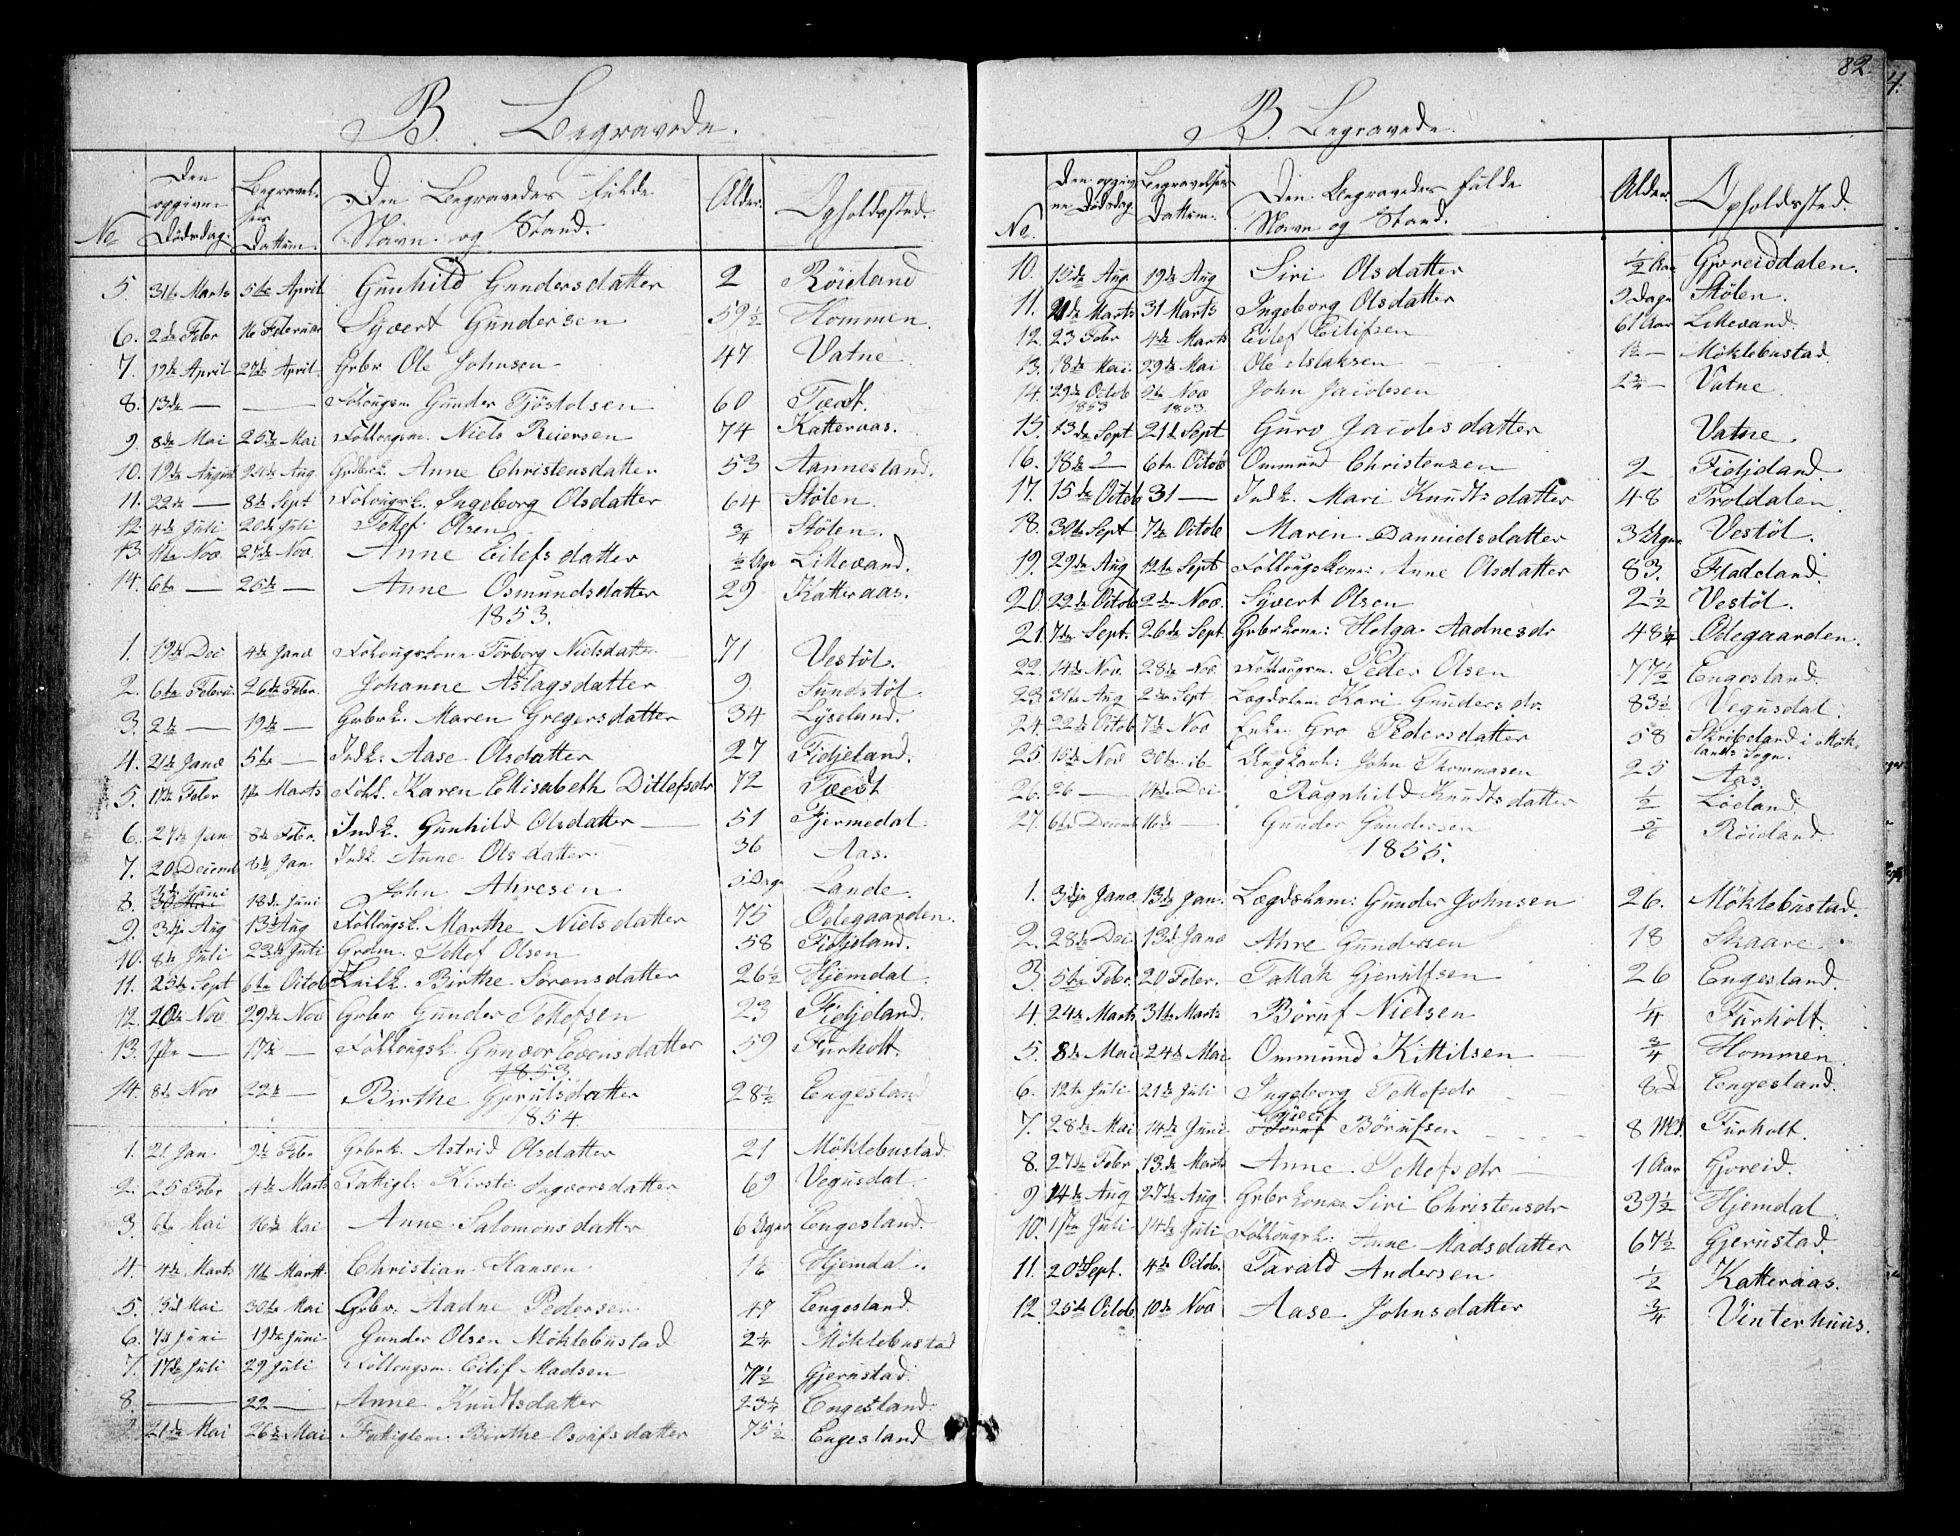 82.
4.
B. Begravede.
No Den opgivne Dødsdag. Begravelses Dattum. Den Begravedes fulde Navn og Stand. Alder. Opholdssted.
5. 31te Marts 5te April Gunhild Gundersdatter 2 Röieland
6. 2de Febr 16 Februar Syvert Gundersen 59 1/2 Hommen.
7. 19de April 27de April Grbr Ole Johnsen 47 Vatne
8. 13de — — Fölougsm Gunder Tjöstolsen 60 Tvedt.
9. 8de Mai 25de Mai Föllougsm. Niels Reiersen 74 Katteraas.
10. 19de August 24de Aug Grdbrk. Anne Christensdatter 53 Aannesland.
11. 22de — 8de Sept Föllougsk. Ingeborg Olsdatter 64 Stölen.
12. 4de Juli 20de Juli Tellef Olsen 3/4 Stölen.
13. 11te Nov. 27de Nov. Anne Eilefsdatter 1/2 Uge Lillevand.
14. 6te — 25de — Anne Osmundsdatter 29 Katteraas.
1853.
1. 19de Dec 4de Janu Föllougskone Torborg Nielsdatter 71 Vestöl.
2. 6te Februa. 26de Febr. Johanne Aslagsdatter 9 Sundstöl
3. 2de — 19de — Grbrk. Maren Gregersdatter 34 Lyseland.
4. 21de Janu 5te — Indk. Aase Olsdatter 27 Fidjeland.
5. 17de Febr 1ste Marts Föll. Karen Ellisabeth Ditlefsdr 72 Tvedt
6. 27de Jan 8de Febr. Indk. Gunhild Olsdatter 51 Fjermedal
7. 20 Decemb 8de Jan Indk. Anne Olsdatter 36 Aas.
8. 3de Juni 18de Juni John Ahresen 5 Dage Lande.
9. 3die Aug 13de Aug Föllougsk. Marthe Nielsdatter 75 Ödegaarden.
10. 8de Juli 23de Juli Grdm. Tellef Olsen 58 Fidjeland.
11. 23de Sept 6te Octob Birthe Sörensdatter 26 1/2 Hjemdal.
12. 20de Nov 29de Nov Grbr Gunder Tellefsen 23 Fidjeland.
13. 1ste — 17de — Föllougsk. Gunvor Evensdatter 59 Furholt.
1853.
14. 8de Nov 22de — Birthe Gjerulsdatter 28 1/2 Engesland
1854.
1. 21 Jan 9de Febr Grbrk. Astrid Olsdatter 21 Möklebustad
2. 25 Febr 4de Marts Fattigl. Kirsti Ingvorsdatter 69 Vegusdal.
3. 6te Mai 16de Mai Anne Salomonsdatter 6 Uger Engesland.
4. 4de Marts 11te Martt Christian Hansen Hjemdal.
5. Mai 30te Mai Grbr. Aadne Pedersen 47 Engesland.
6. 7de Juni 19de Juni Gunder Olsen Möklebustad 2 1/4 Möklebustad
7. 17de Juli 29 Juli Föllougsm. Eilif Madsen 71 1/2 Gjerustad.
8. — 22 — Anne Knudtsdatter 23 1/4 Engesland.
9. 21de Mai 26de Mai Fattiglem. Birthe Osvafsdatter 75 1/2 Engesland
B. Begravede.
No. Den opgivne Dødsdag Begravelses Dattum. Den Begravedes fulde Navn og Stand. Alder. Opholdssted.
10. 15de Aug. 19de Aug Siri Olsdatter 1/2 Aar Gjvreiddalen.
11. 21de Marts 31 Marts Ingeborg Olsdatter 9 Dage Stölen.
12. 23 Febr 4de Marts Eilef Eilifsen 61 Aar Lillevand.
13. 18de Mai 29de Mai Ole Aslaksen 1 1/2 — Möklebustad
14. 29de Octob 1853 5te Nov 1853. John Jacobsen 2 3/4 — Vatne
15. 13de Sept 21de Sept Guro Jacobsdatter Vatne
16. 18de — 6te Octob Ommund Christensen 2 Fidjeland.
17. 15de Octob 31 — Indk. Mari Knudtsdatter 48 Troldalen.
18. 30te Sept 7de Octob Maren Dannielsdatter 3 Uger Vestöl.
19. 29de Aug 12te Sept Föllougskone: Anne Olsdatter 83. Fladeland.
20. 22de Octob 2den Nov. Syvert Olsen 2 1/2 Vestöl.
21. 7de Sept. 26de Sept. Grbrkone: Helga Aadnesdr 48 1/4 Ödegaarden.
22. 14de Nov. 28de Nov Föllougsm. Peder Olsen 77 1/2 Engesland.
23. 31te Aug 2den Sept Lægdslem Kari Gundersdr 83 1/2 Vegusdal.
24. 22de Octob 7de Nov Enke Gro Pedersdatter 58 Skribeland i Möklands Sogn.
25. 15de Nov 30te ib Ungkarl: John Thommasen 25 Aas.
26. 26 — 14de Dec Ragnhild Knudtsdatter 1/2 Löeland
27. 6te Decemb 16de — Gunder Gundersen 5/6 Röieland
1855.
1. 3die Janu. 13de Jan. Lægdslem: Gunder Johnsen 26. Möklebustad.
2. 28de Dec 13de Janu Ahre Gundersen 18 Skaare.
3. 5te Febr. 20 Febr. Tallak Gjerulfsen 26 Engesland.
4. 24de Marts 31te Marts Böruf Nielsen 1/4 Furholt.
5. 8de Mai 24de Mai Ommund Kittilsen 3/4 Hommen.
6. 12te Juli 21de Juli Ingeborg Tellefsdr 8 d Engesland.
7. 28de Mai 14de Juni Syvert Börufsen 8 Md. Furholt.
8. 27de Febr 13de Marts Anne Tellefsdr 1 Aar Gjvreid.
9. 14de Aug 27de Aug Grbrkone Siri Christensdr 39 1/2 Hjemdal
10. 1ste Juli 14de Juli Föllougsk: Anne Madsdatter 67 1/2 Gjerustad.
11. 20de Sept. 4de Octob. Tarald Andersen 1/2 Katteraas.
12. 26de Octob 10de Nov Aase Johnsdatter 3/4 Vinterhuus.